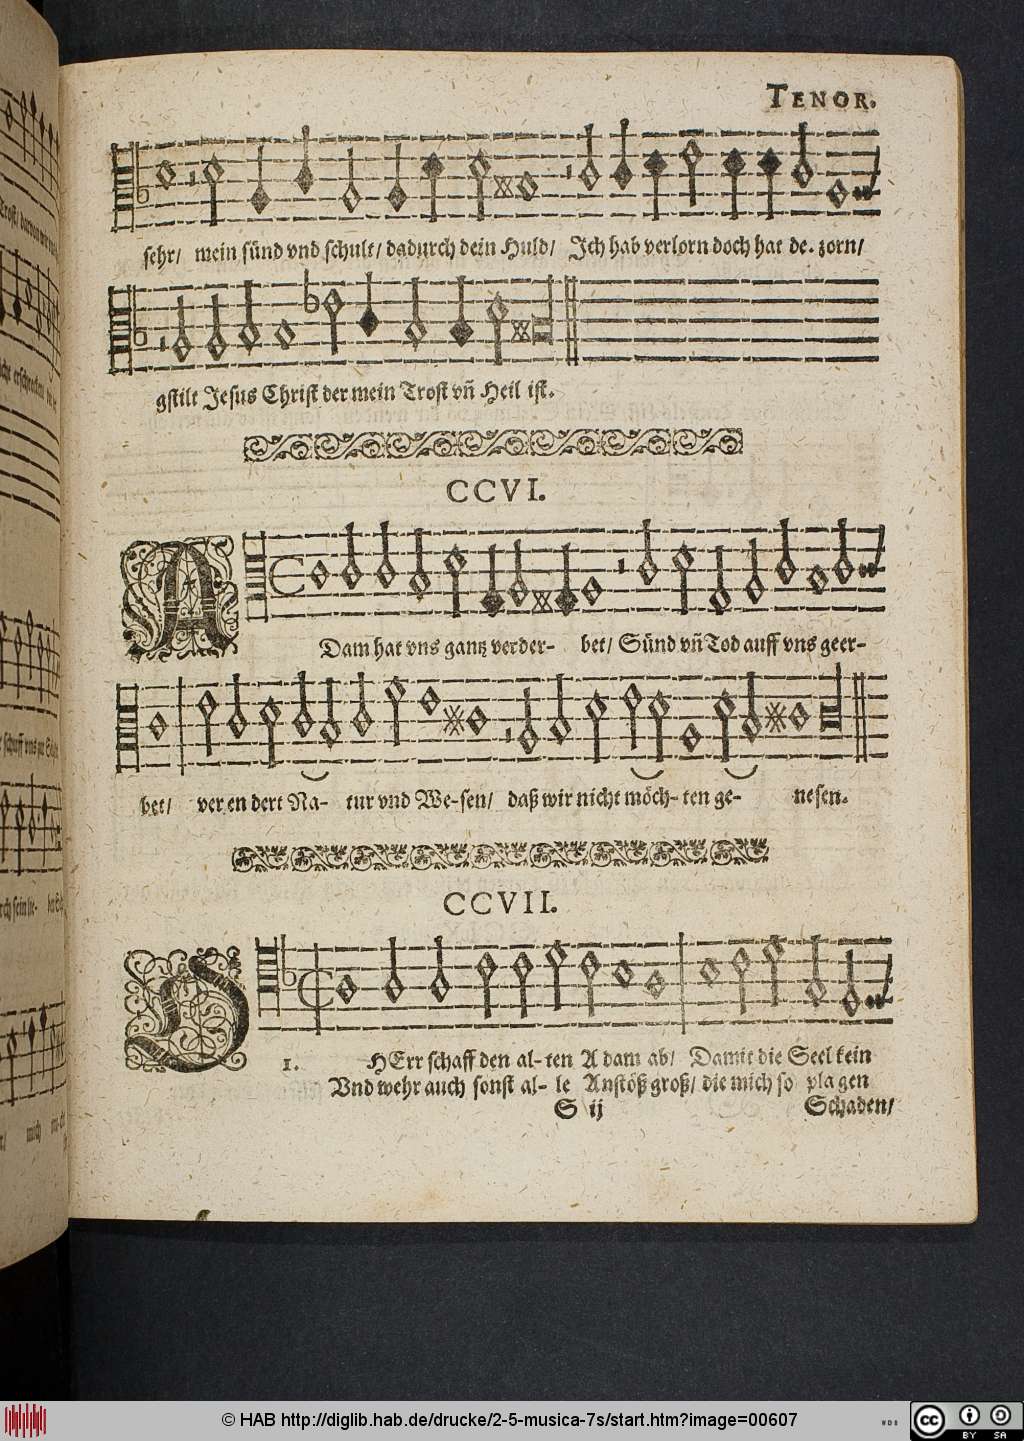 TENOR.
sehr/ mein sünd vnd schult/ dadurch dein Huld/ Ich hab verlorn doch hat de. zorn/
gstilt Jesus Christ der mein Trost vñ Heil ist.
CCVI.
ADam hat vns gantz verder- bet/ Sünd vñ Tod auff vns geer-
bet/ ver en dert Na- tur vnd We-sen/ daß wir nicht möch- ten ge- nesen.
CCVII.
1. HErr schaff den al- ten A dam ab/ Damit die Seel kein
Vnd wehr auch sonst al- le Anstöß groß/ die mich so pla gen
S ij Schaden/
© HAB http://diglib.hab.de/drucke/2-5-musica-7s/start.htm?image=00607
WDB
cc BY SA